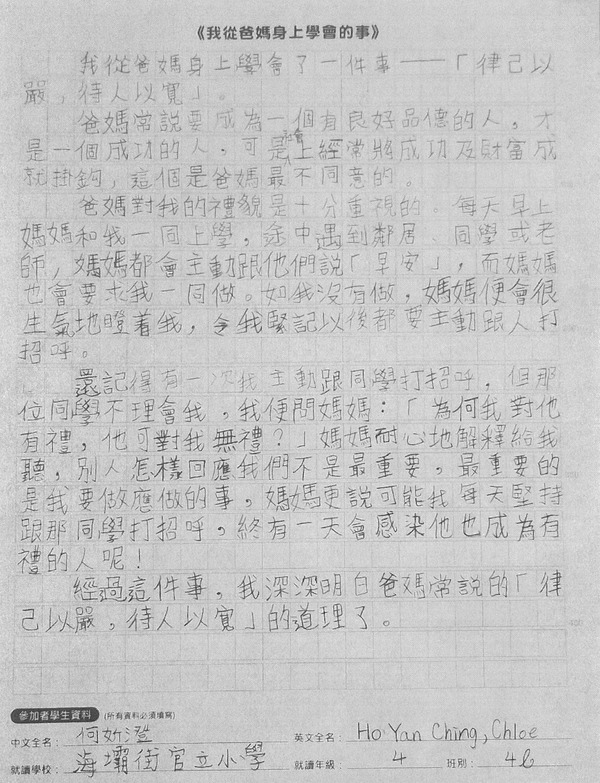 《我從爸媽身上學會的事》
我從爸媽身上學會了一件事——「律己以
嚴，待人以寬」。
爸媽常說要成為一個有良好品德的人，才
是一個成功的人。可是社會上經常將成功及財富成
就掛鈎，這個是爸媽最不同意的。
爸媽對我的禮貌是十分重視的。每天早上
媽媽和我一同上學，途中遇到鄰居、同學或老
師，媽媽都會主動跟他們說「早安」，而媽媽
也會要求我一同做。如我沒有做，媽媽便會很
生氣地瞪着我，令我緊記以後都要主動跟人打
招呼。
還記得有一次我主動跟同學打招呼，但那
位同學不理會我，我便問媽媽：「為何我對他
有禮，他可對我無禮？」媽媽耐心地解釋給我
聽，別人怎樣回應我們不是最重要，最重要的
是我要做應做的事，媽媽更說可能我每天堅持
跟那同學打招呼，終有一天會感染他也成為有
禮的人呢！
經過這件事，我深深明白爸媽常說的「律
己以嚴，待人以寬」的道理了。
參加者學生資料 (所有資料必須填寫)
中文全名： 何妡澄 英文全名： Ho Yan Ching, Chloe
就讀學校： 海壩街官立小學 就讀年級： 4 班別： 4b